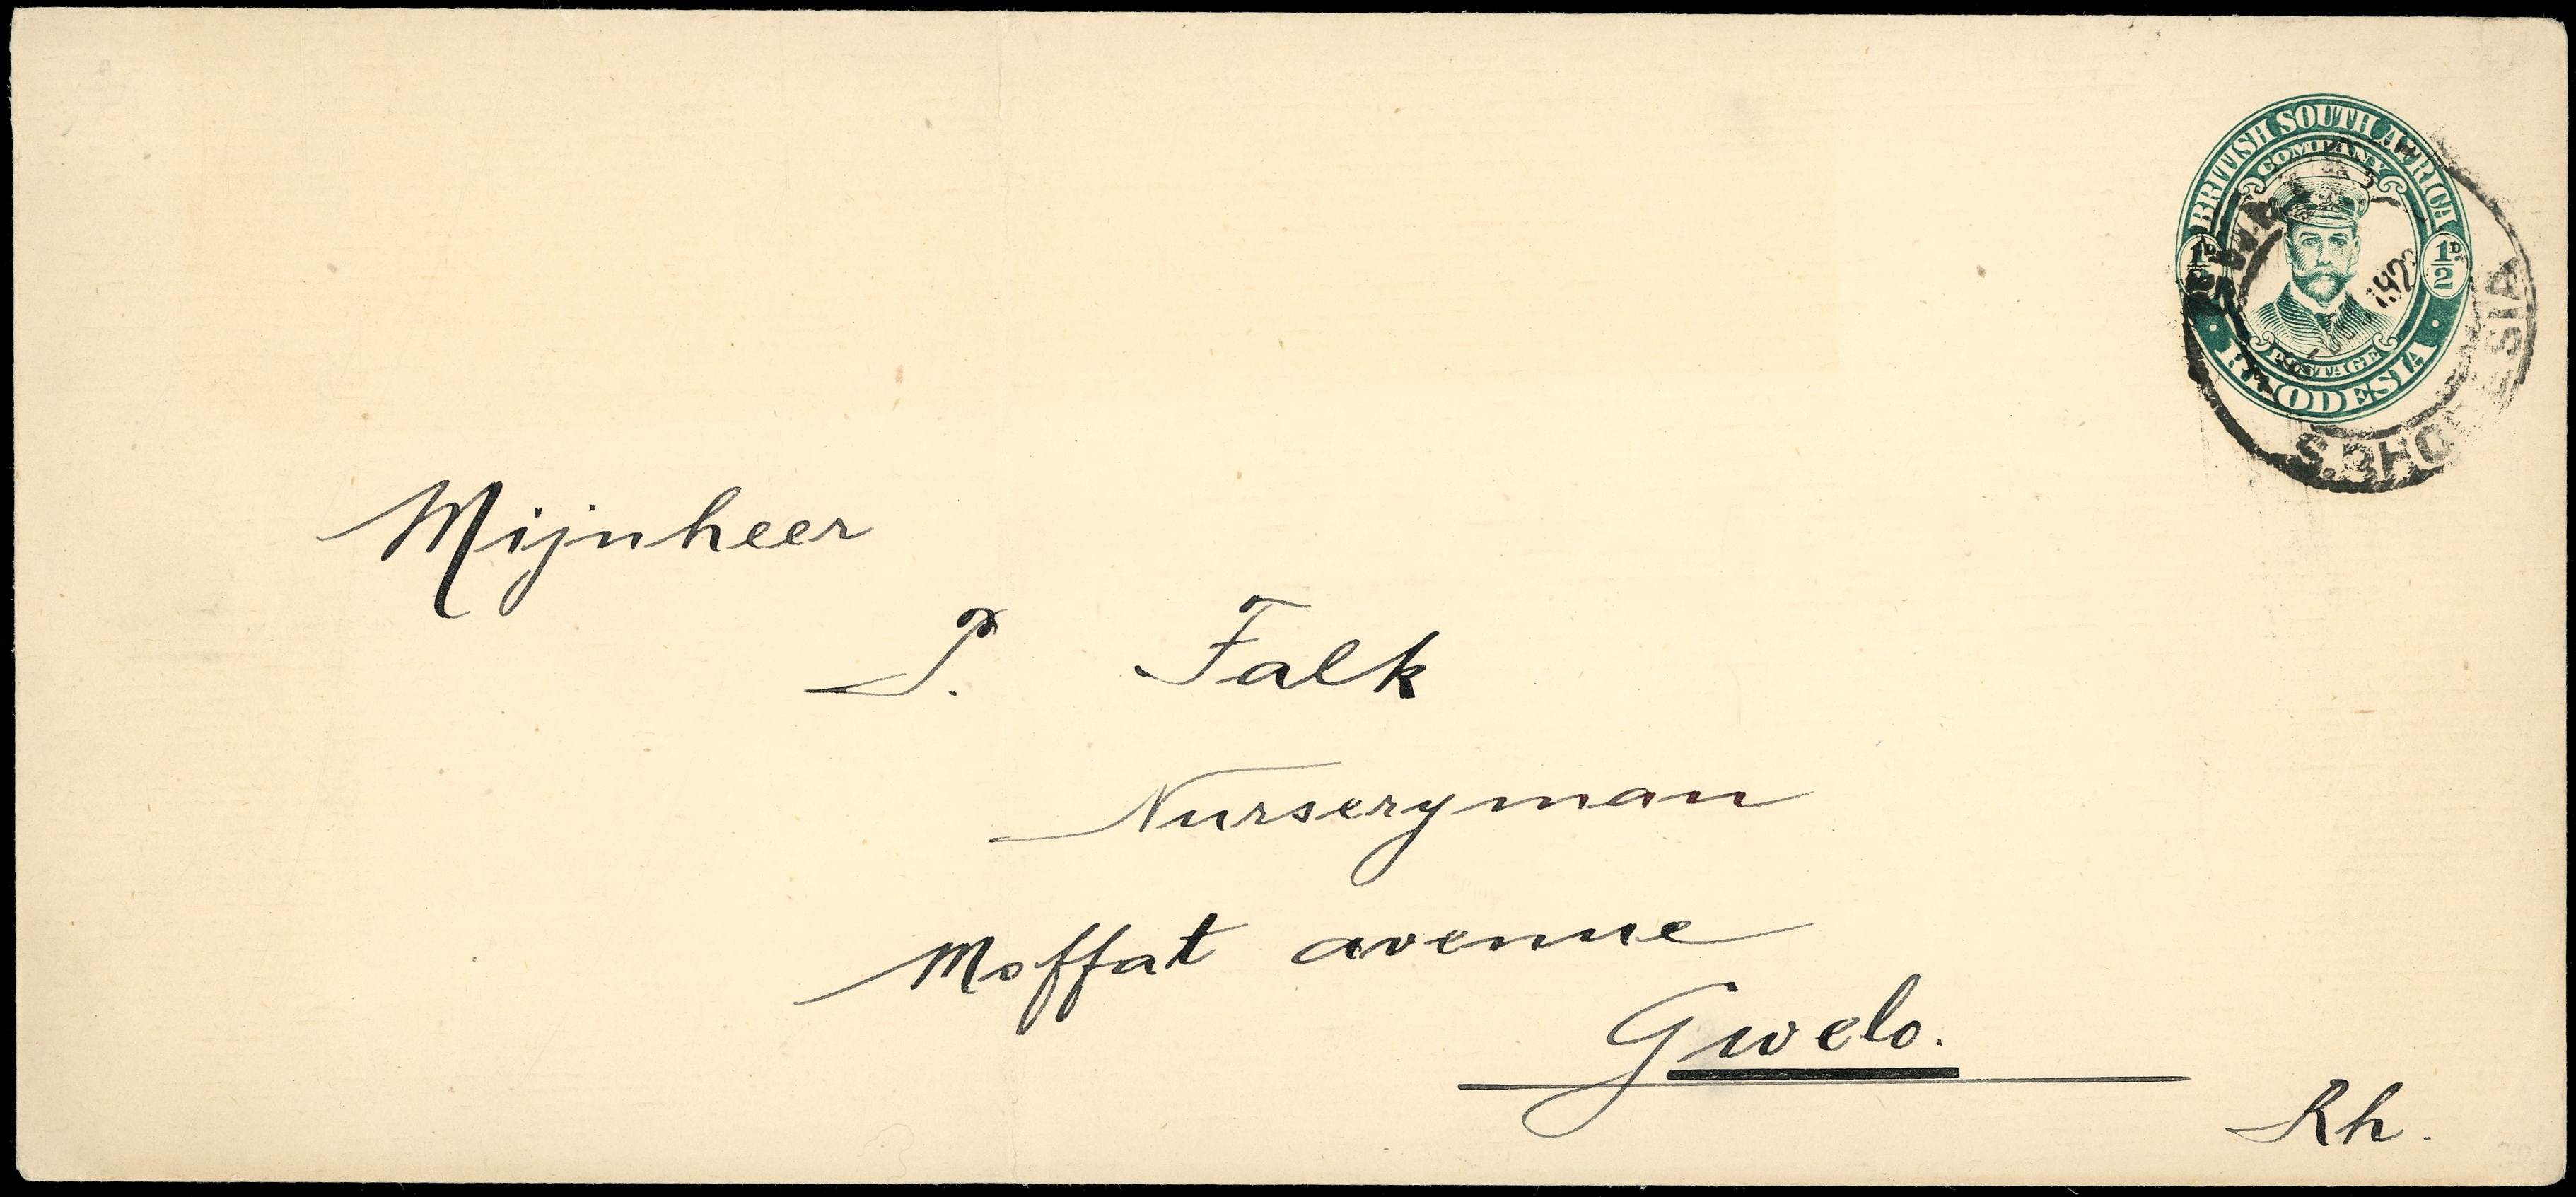 BRITISH SOUTH AFRICA
COMPANY
½D.
POSTAGE
RHODESIA
S. RHODESIA
Mijnheer
P. Falk
Nurseryman
Moffat avenue
Gwelo.
Rh.